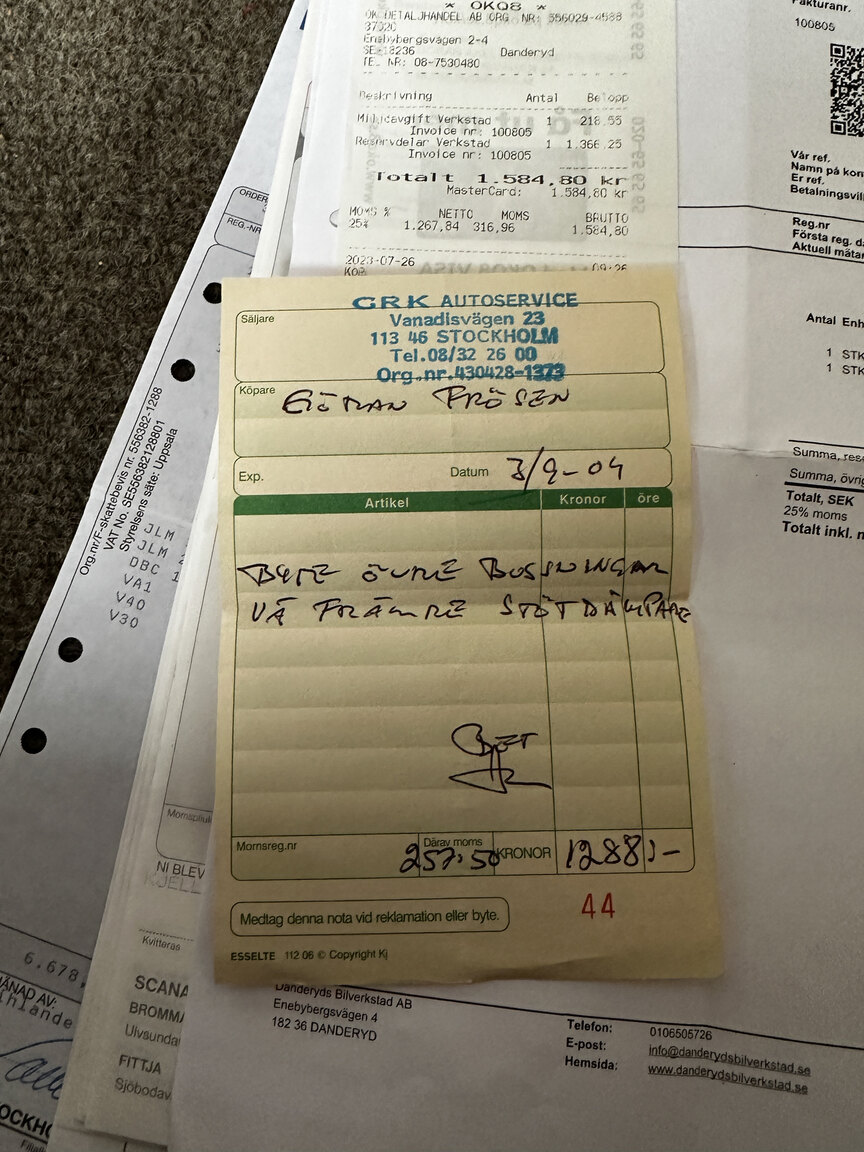 * OKQ8 *
OK DETALJHANDEL AB ORG NR: 556029-4588
37020
Enebybergsvägen 2-4
SE-18236 Danderyd
TEL NR: 08-7530480
Beskrivning Antal Belopp
Miljöavgift Verkstad 1 218,55
Invoice nr: 100805
Reservdelar Verkstad 1 1.366,25
Invoice nr: 100805
Totalt 1.584,80 kr
MasterCard: 1.584,80 kr
MOMS % NETTO MOMS BRUTTO
25% 1.267,84 316,96 1.584,80
2023-07-26 09:26
KÖP
GRK AUTOSERVICE
Vanadisvägen 23
113 46 STOCKHOLM
Tel.08/32 26 00
Org.nr.430428-1373
Säljare
Köpare
GÖRAN FRÖSEN
Exp.
Datum 3/9-04
Artikel Kronor öre
BYTE ÖVRE BUSSNINGAR
VÄ FRÄMRE STÖTDÄMPARE
BET
Momsreg.nr
Därav moms
257:50 KRONOR 1288:-
Medtag denna nota vid reklamation eller byte.
44
ESSELTE 112 06 © Copyright Kj
Fakturanr.
100805
Vår ref.
Namn på kon
Er ref.
Betalningsvil
Reg.nr
Första reg. d
Aktuell mätar
Antal Enh
1 STK
1 STK
Summa, rese
Summa, övrig
Totalt, SEK
25% moms
Totalt inkl. m
Danderyds Bilverkstad AB
Enebybergsvägen 4
182 36 DANDERYD
Telefon: 0106505726
E-post: info@danderydsbilverkstad.se
Hemsida: www.danderydsbilverkstad.se
ORDER
REG.-NR
Org.nr/F-skattebevis nr. 556382-1288
VAT No. SE556382128801
Styrelsens säte: Uppsala
JLM
JLM
DBC 1
VA1
V40
V30
Momspliuk
NI BLEV
KJELL
Kvitteras
6.678,
MÅNAD AV:
SCANA
BROMMA
Ulvsunda
FITTJA
Sjöbodav
OCKHO